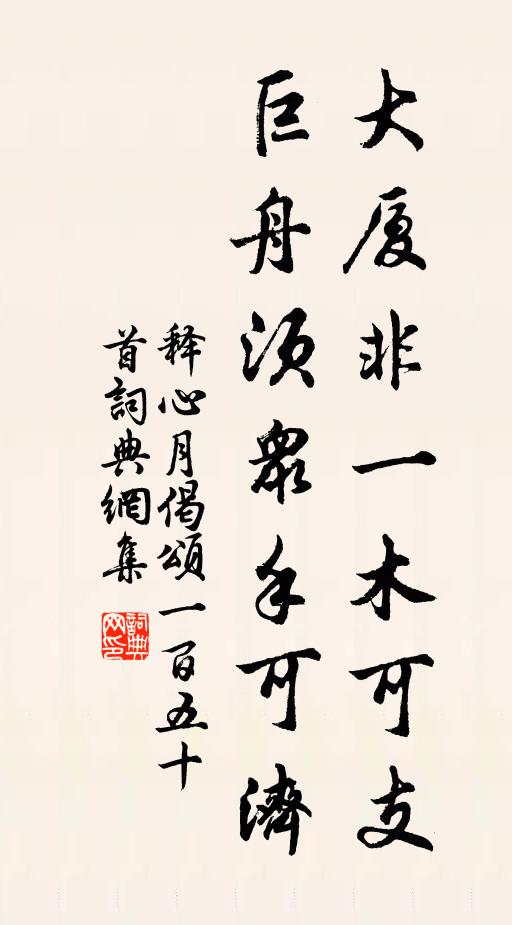 大厦非一木可支
巨舟须眾手可濟
释心月偈頌一百五十
首詞典網集
詞典
网印